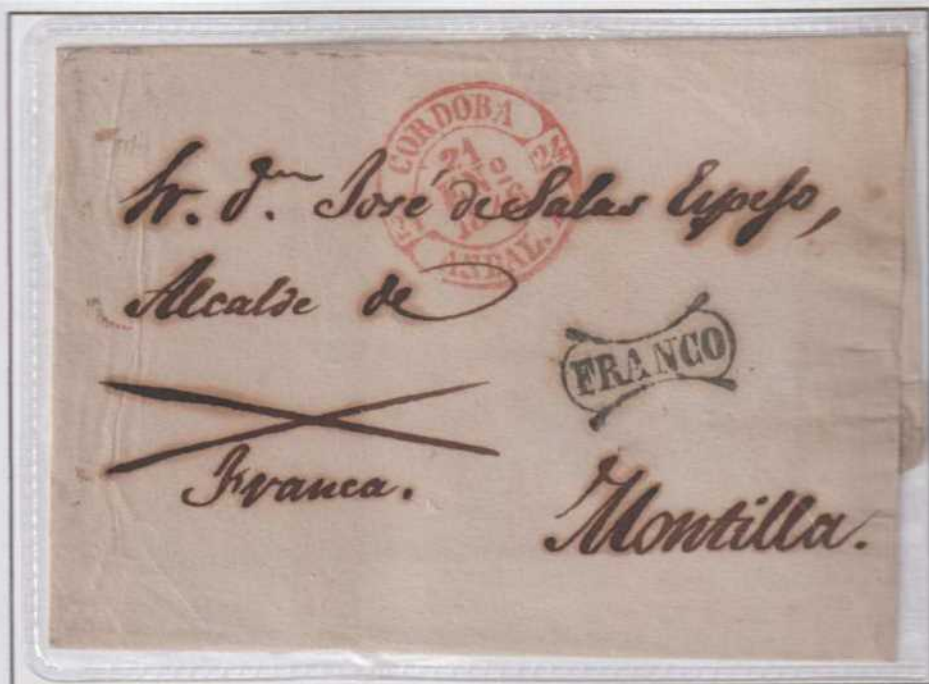 CORDOBA
21
ANDAL. B
Sr. Dn. José de Salas Espejo,
Alcalde de
FRANCO
Franca.
Montilla.